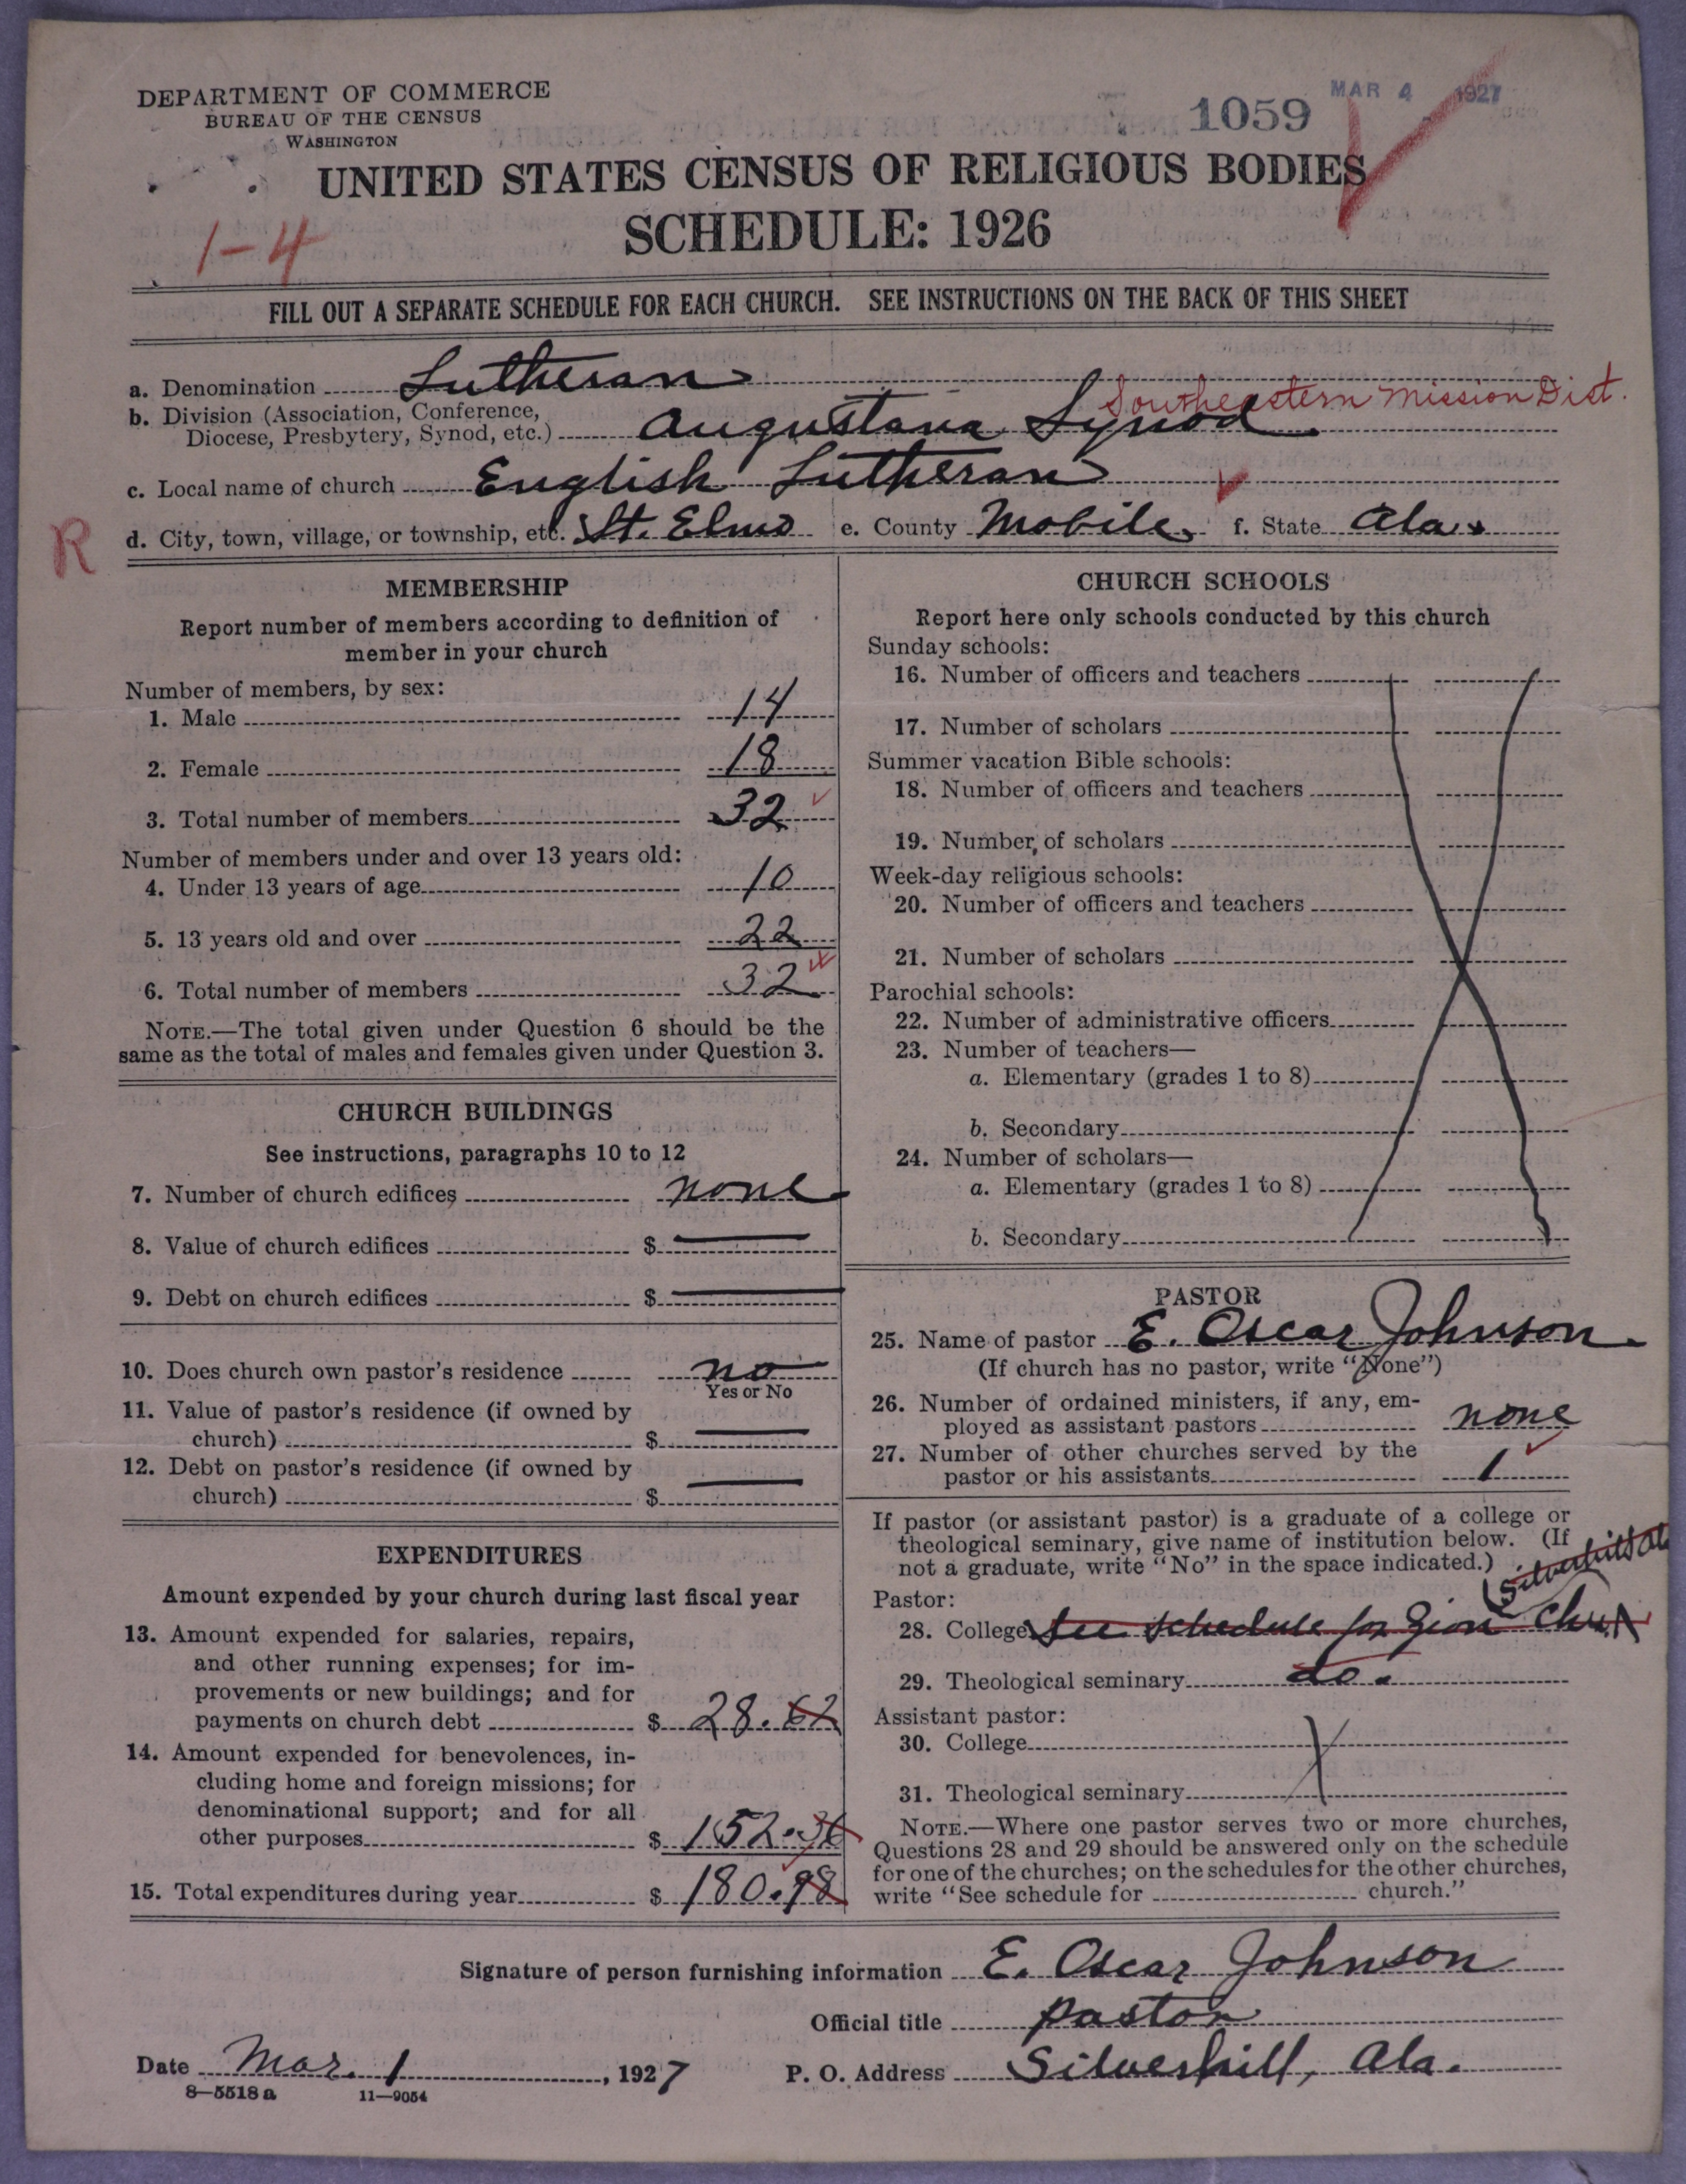 DEPARTMENT OF COMMERCE
BUREAU OF THE CENSUS
WASHINGTON
1059
MAR 4 1927
UNITED STATES CENSUS OF RELIGIOUS BODIES
SCHEDULE: 1926
1-4
FILL OUT A SEPARATE SCHEDULE FOR EACH CHURCH. SEE INSTRUCTIONS ON THE BACK OF THIS SHEET
a. Denomination Lutheran
Southeastern Mission Dist.
b. Division (Association, Conference,
Diocese, Presbytery, Synod, etc.) Augustana Synod
c. Local name of church English Lutheran
R
d. City, town, village, or township, etc. St. Elmo e. County Mobile, f. State Ala.
MEMBERSHIP
Report number of members according to definition of
member in your church
Number of members, by sex:
1. Male 14
2. Female 18
3. Total number of members 32
Number of members under and over 13 years old:
4. Under 13 years of age 10
5. 13 years old and over 22
6. Total number of members 32
NOTE.—The total given under Question 6 should be the
same as the total of males and females given under Question 3.
CHURCH BUILDINGS
See instructions, paragraphs 10 to 12
7. Number of church edifices none
8. Value of church edifices $
9. Debt on church edifices $
10. Does church own pastor's residence no
Yes or No
11. Value of pastor's residence (if owned by
church) $
12. Debt on pastor's residence (if owned by
church) $
EXPENDITURES
Amount expended by your church during last fiscal year
13. Amount expended for salaries, repairs,
and other running expenses; for im-
provements or new buildings; and for
payments on church debt $ 28.62
14. Amount expended for benevolences, in-
cluding home and foreign missions; for
denominational support; and for all
other purposes $ 152.36
15. Total expenditures during year $ 180.98
CHURCH SCHOOLS
Report here only schools conducted by this church
Sunday schools:
16. Number of officers and teachers
17. Number of scholars
Summer vacation Bible schools:
18. Number of officers and teachers
19. Number of scholars
Week-day religious schools:
20. Number of officers and teachers
21. Number of scholars
Parochial schools:
22. Number of administrative officers
23. Number of teachers—
a. Elementary (grades 1 to 8)
b. Secondary
24. Number of scholars—
a. Elementary (grades 1 to 8)
b. Secondary
PASTOR
25. Name of pastor E. Oscar Johnson
(If church has no pastor, write "None")
26. Number of ordained ministers, if any, em-
ployed as assistant pastors none
27. Number of other churches served by the
pastor or his assistants 1
If pastor (or assistant pastor) is a graduate of a college or
theological seminary, give name of institution below. (If
not a graduate, write "No" in the space indicated.)
Pastor:
28. College See schedule for Zion
29. Theological seminary do.
Assistant pastor:
30. College
31. Theological seminary
NOTE.—Where one pastor serves two or more churches,
Questions 28 and 29 should be answered only on the schedule
for one of the churches; on the schedules for the other churches,
write "See schedule for church."
Signature of person furnishing information E. Oscar Johnson
Official title Pastor
Date Mar. 1, 1927 P. O. Address Silverhill, Ala.
8—5518 a 11—9054